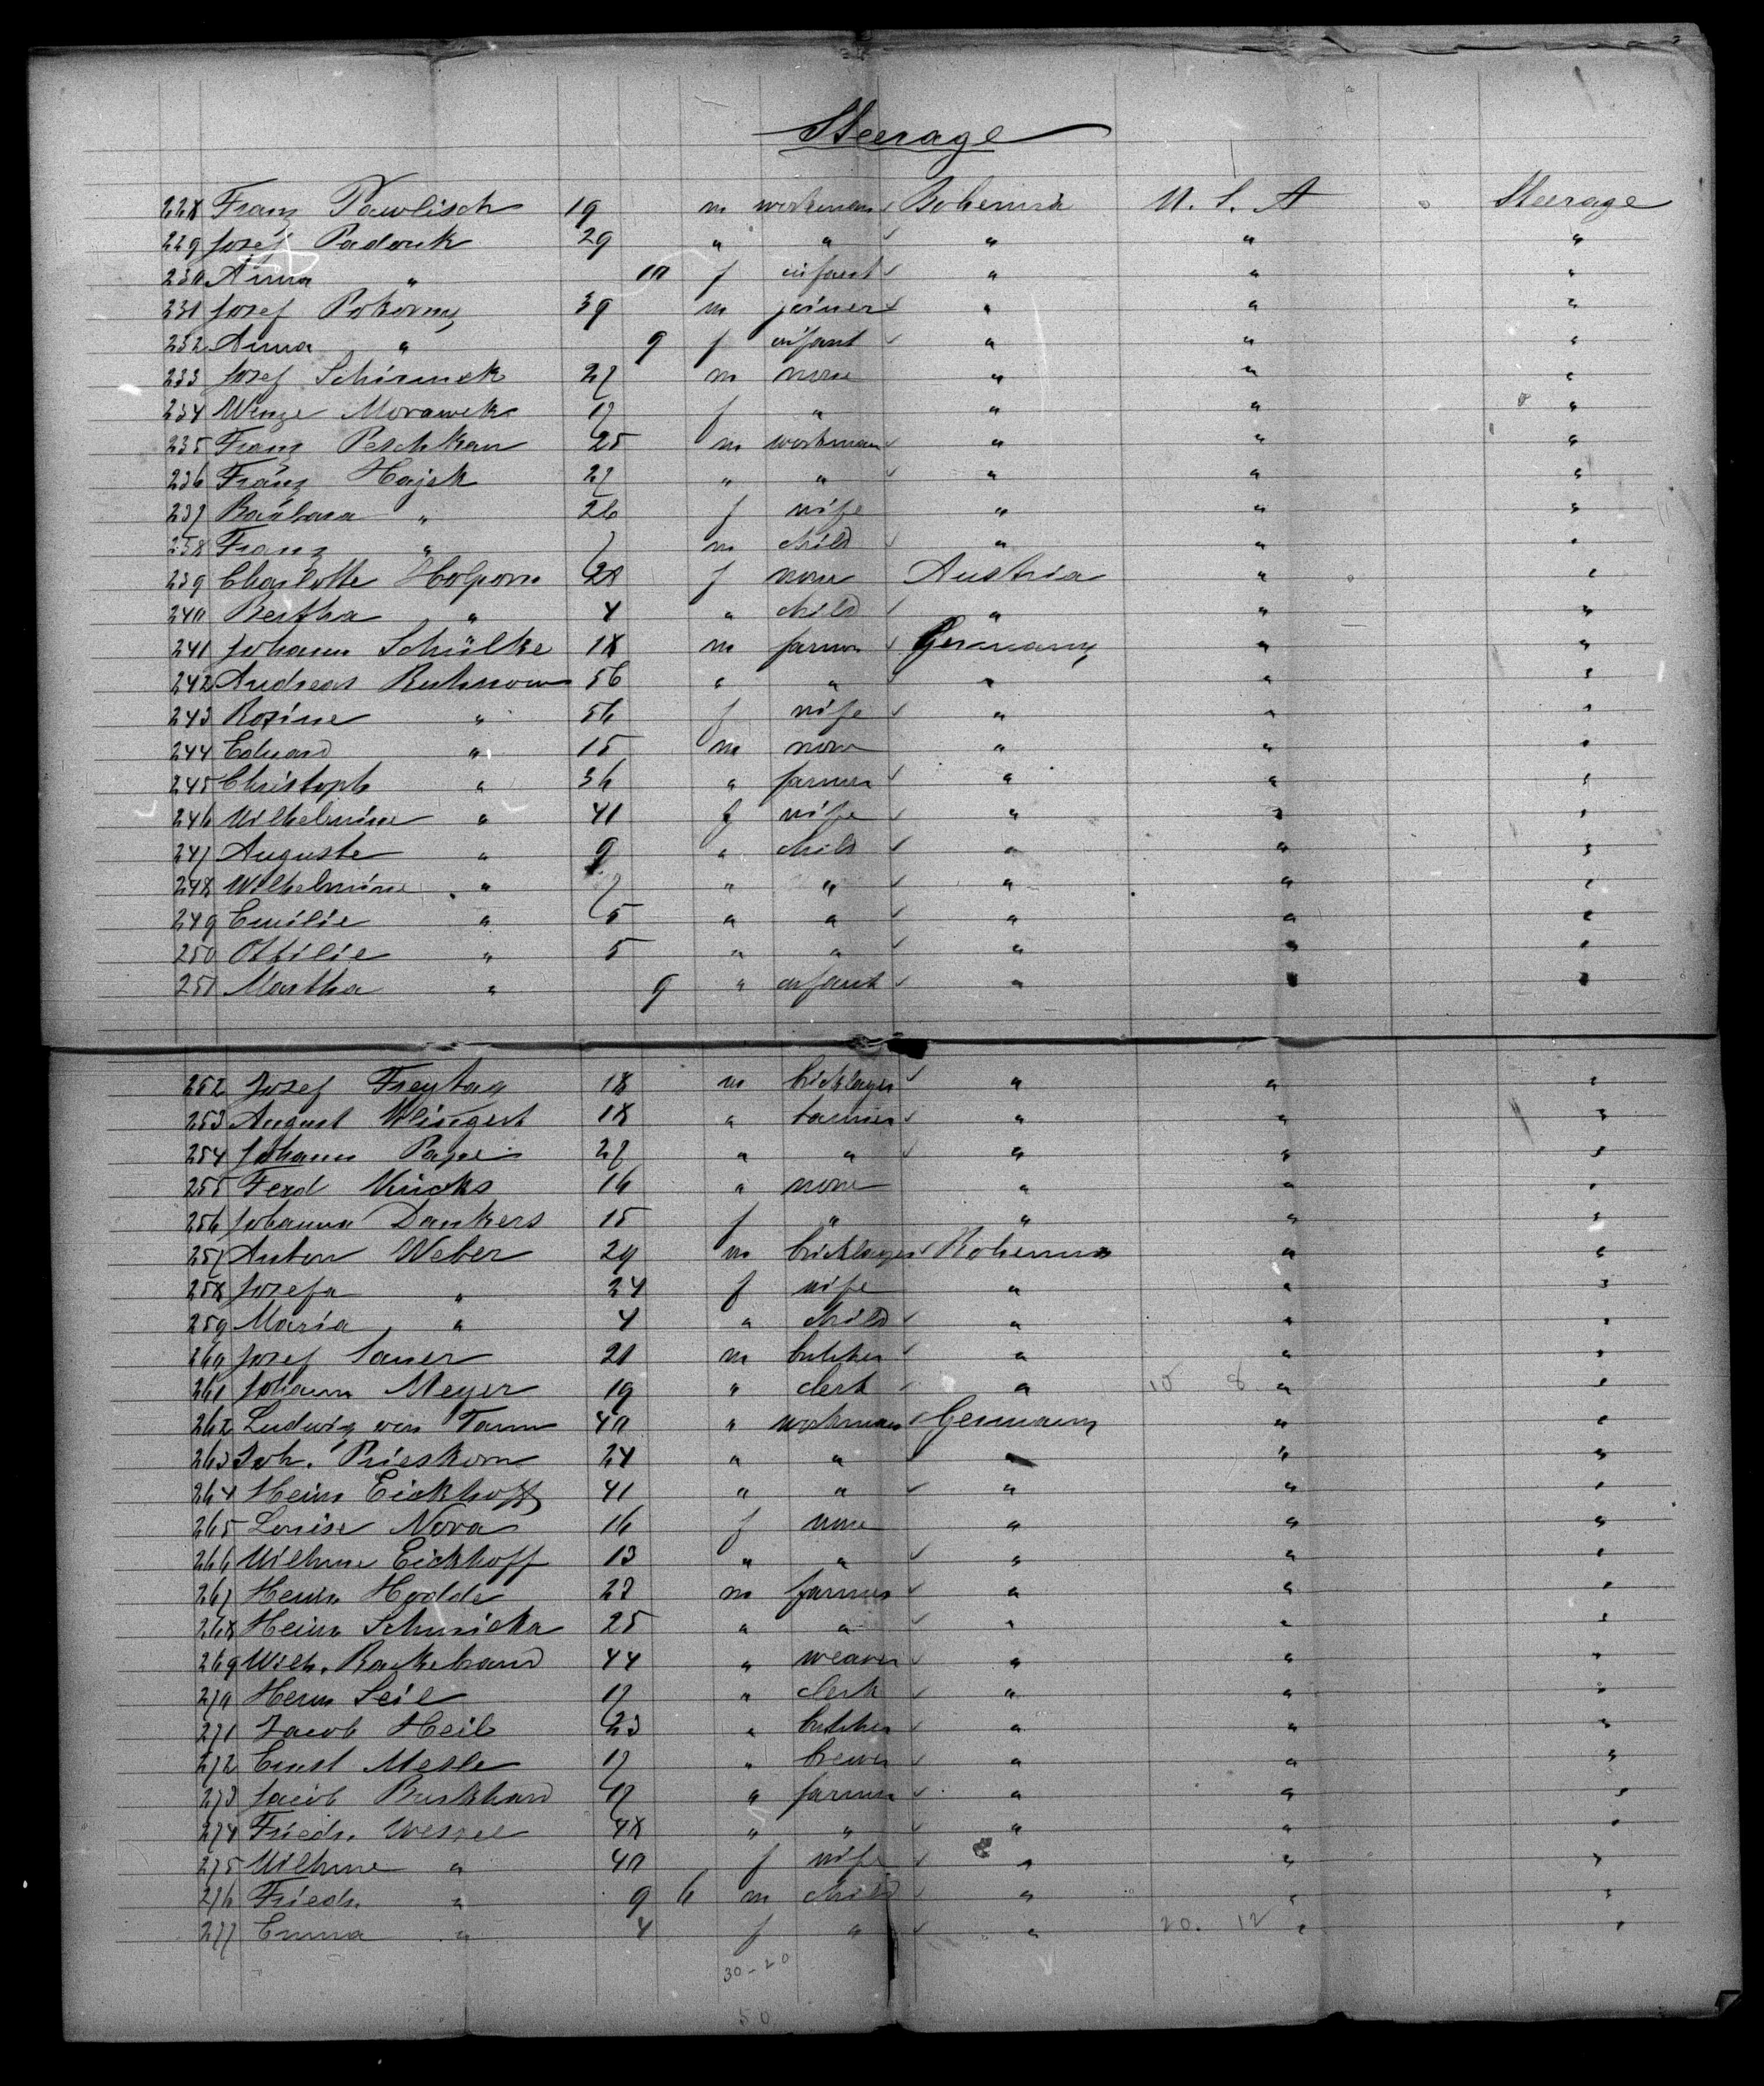 Steerage
228 Franz Pawlisch 19 m workman Bohemia U. S. A Steerage
229 Josef Padouk 29 " " " " "
230 Anna " 10 f infant " " "
231 Josef Pokorny 39 m joiner " " "
232 Anna " 9 f infant " " "
233 Josef Schimek 27 m none " " "
234 Wenze Morawek 17 f " " " "
235 Franz Peschkau 25 m workman " " "
236 Franz Hajek 27 " " " " "
237 Barbara " 26 f wife " " "
238 Franz " 7 m child " " "
239 Charlotte Holporn 28 f none Austria " "
240 Bertha " 4 " child " " "
241 Johann Schülke 18 m farmer Germany " "
242 Andreas Ruhnow 56 " " " " "
243 Rosine " 56 f wife " " "
244 Eduard " 15 m none " " "
245 Christoph " 36 " farmer " " "
246 Wilhelmine " 41 f wife " " "
247 Auguste " 9 " child " " "
248 Wilhelmine " 7 " " " " "
249 Emilie " 5 " " " " "
250 Ottilie " 5 " " " " "
251 Martha " 9 " infant " " "
252 Josef Freytag 18 m bricklayer " " "
253 August Wlingert 18 " tanner " " "
254 Johann Pape 27 " " " " "
255 Ferd 16 " none " " "
256 Johanna Dankers 15 f " " " "
257 Anton Weber 29 m bricklayer Bohemia " "
258 Josefa " 24 f wife " " "
259 Maria " 4 " child " " "
260 Josef Sauer 21 m butcher " " "
261 Johann Meyer 19 " clerk " 10 8 " "
262 Ludwig von Tann 40 " workman Germany " "
263 Joh. Prieskorn 24 " " " " "
264 Heinr Eickhoff 41 " " " " "
265 Louise Nova 16 f none " " "
266 Wilhme Eickhoff 13 " " " " "
267 Heinr Hodde 27 m farmer " " "
268 Heinr Schnicka 25 " " " " "
269 Wilh. Rackebrand 44 " weaver " " "
270 Herm Seil 17 " clerk " " "
271 Jacob Heib 23 " butcher " " "
272 Ernst Mesle 17 " brewer " " "
273 Jacob Burkhard 17 " farmer " " "
274 Friedr. Wessel 48 " " " " "
275 Wilhme " 40 f wife " " "
276 Friedr. " 9 6 m child " " "
277 Emma " 4 f " " 20. 12 " "
30-20
50